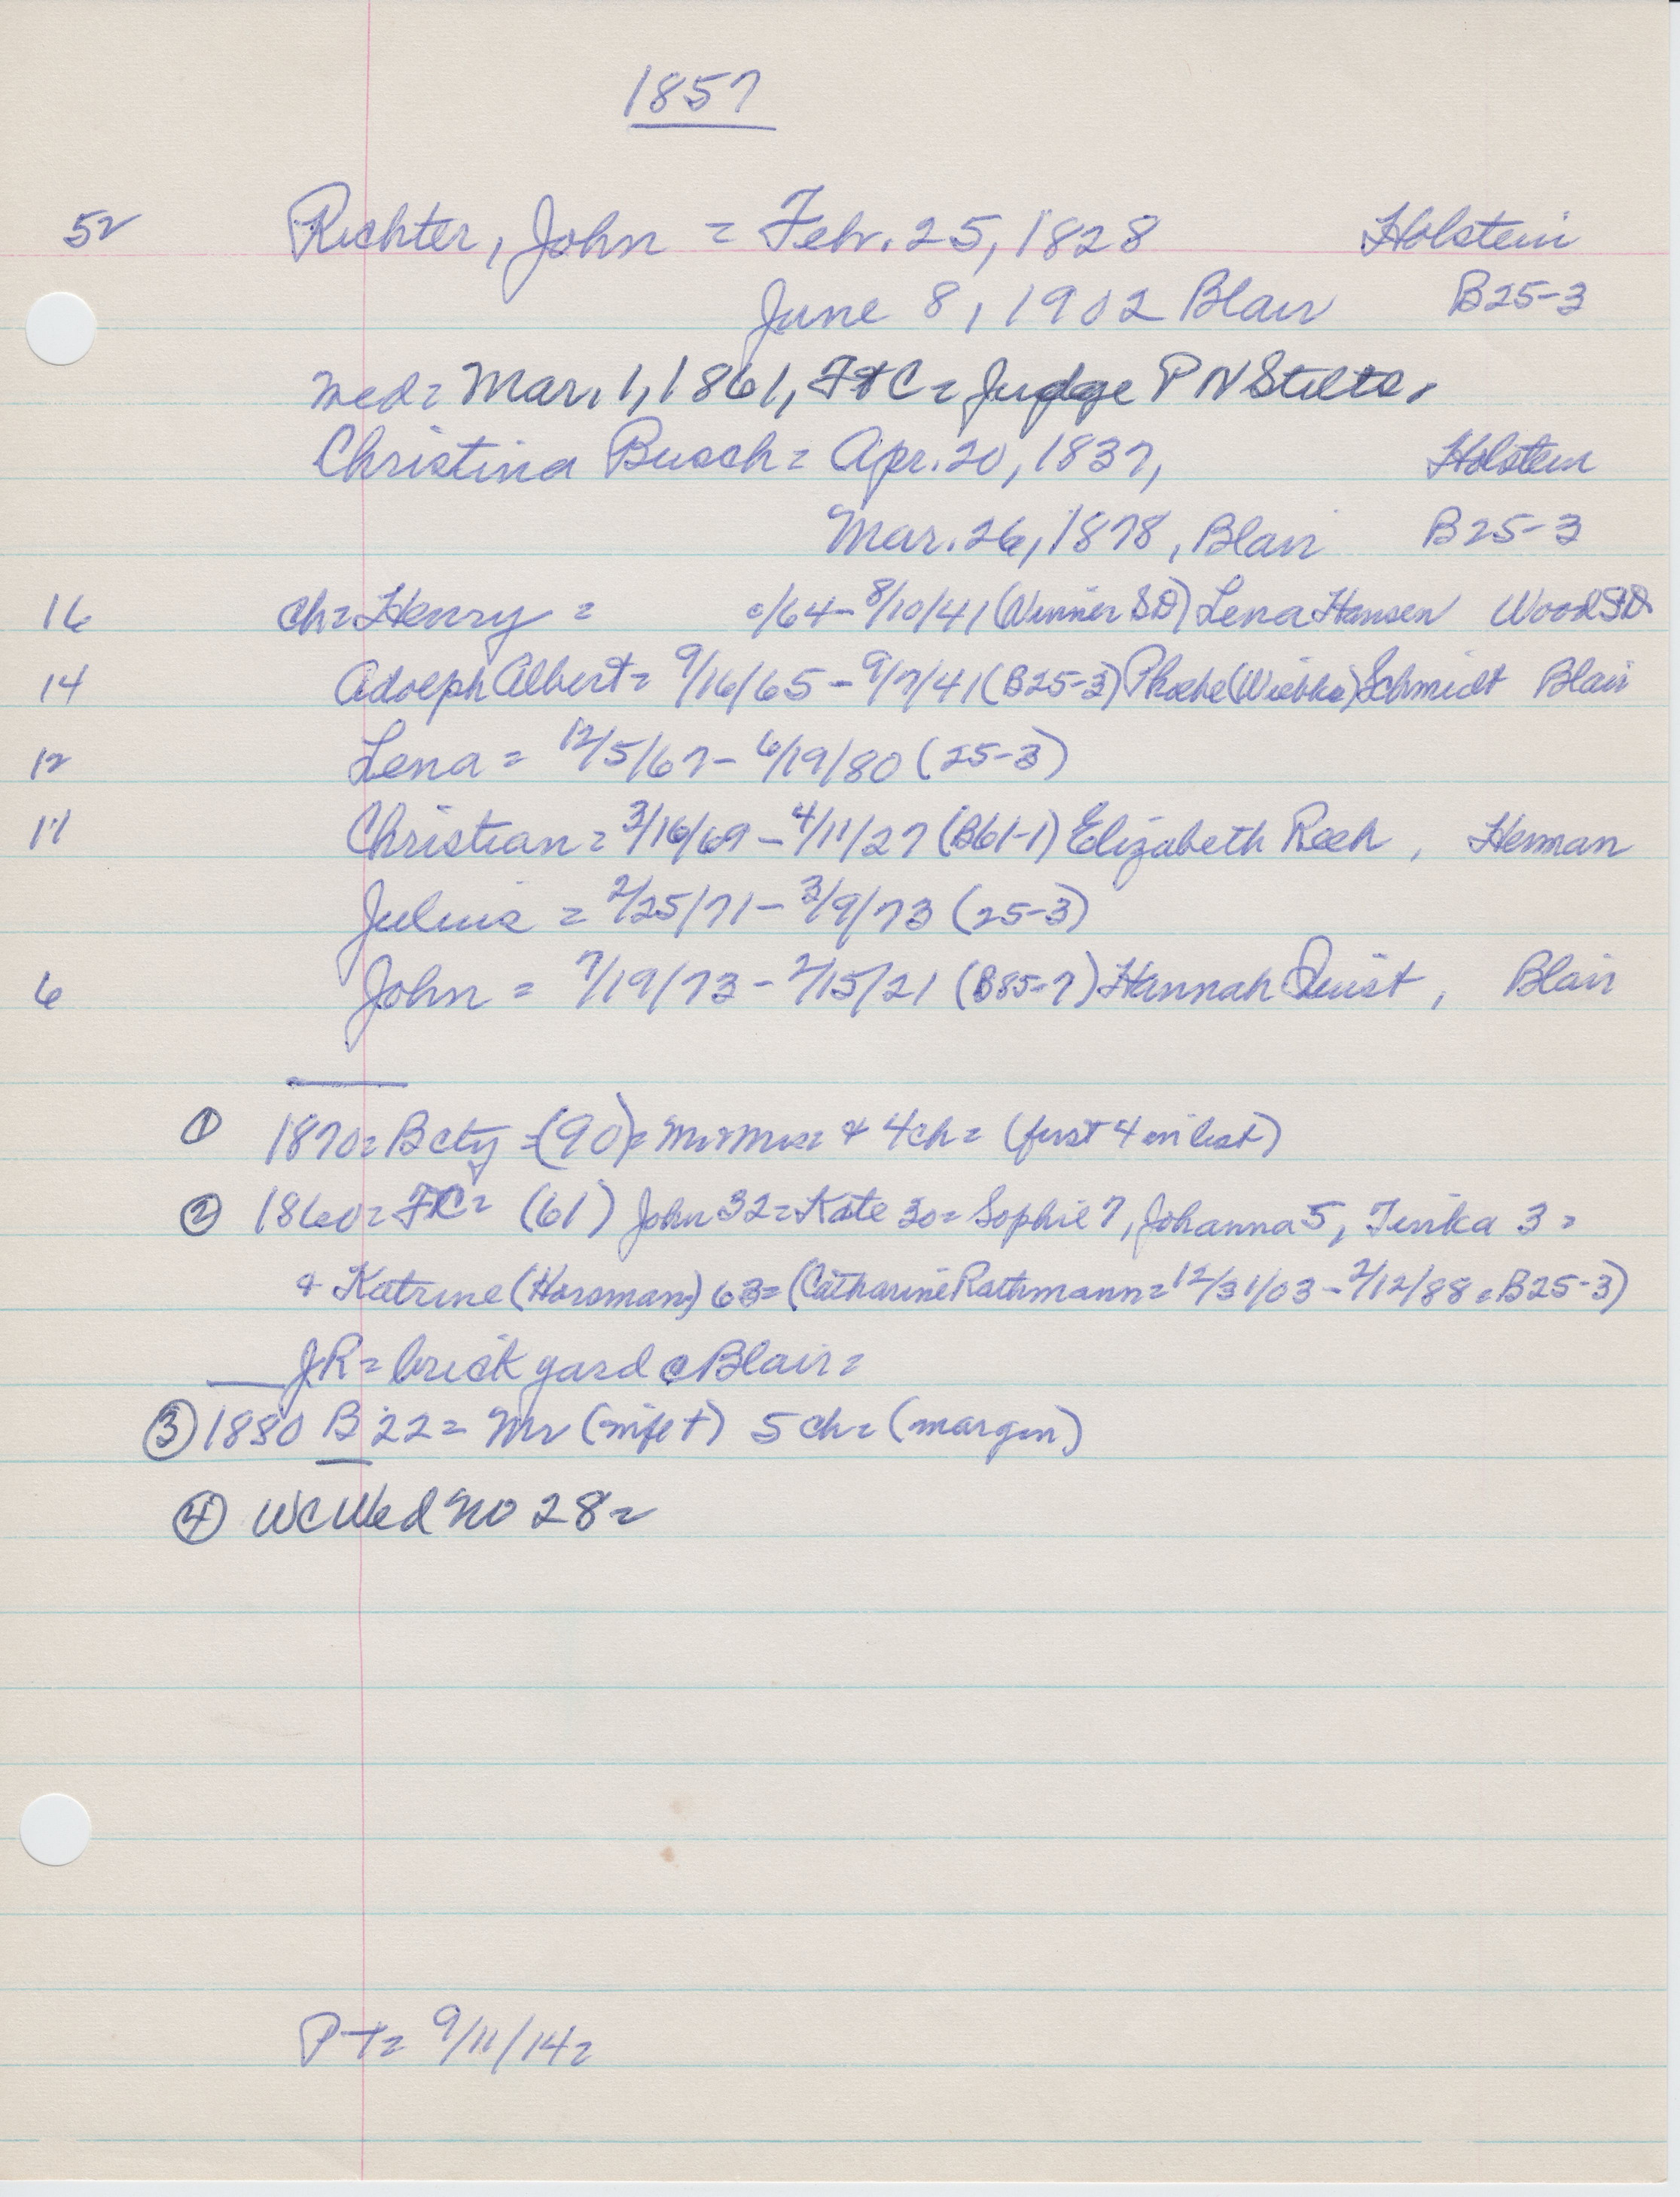 1857
52 Richter, John = Febr. 25, 1828 Holstein
June 8, 1902 Blair B25-3
med = Mar. 1, 1861, Ft C = Judge P N Stilts.
Christina Busch = Apr. 20, 1837, Holstein
Mar. 26, 1878, Blair B25-3
16 ch = Henry = 0/64 - 8/10/41 (Winner SD) Lena Hansen Wood SD
14 Adolph Albert = 9/16/65 - 9/7/41 (B25-3) Phoebe (Wiebke) Schmidt Blair
12 Lena = 12/5/67 - 6/19/80 (25-3)
11 Christian = 3/16/69 - 4/11/27 (B61-1) Elizabeth Reeh, Herman
Julius = 2/25/71 - 3/9/73 (25-3)
6 John = 7/19/73 - 2/15/21 (B85-7) Hannah Quist, Blair
① 1870 = B cty = (90) = Mr & Mrs = & 4 ch = (first 4 in list)
② 1860 = Ft C = (61) John 32 = Kate 30 = Sophie 7, Johanna 5, 3 =
& Katrine (Horsman) 63 = (Catharine Rathmann = 12/31/03 - 2/12/88 = B25-3)
JR = brick yard @ Blair =
③ 1880 B 22 = Mr (wife †) 5 ch = (margin)
④ WC Wed No 28 =
PT = 9/11/14 =